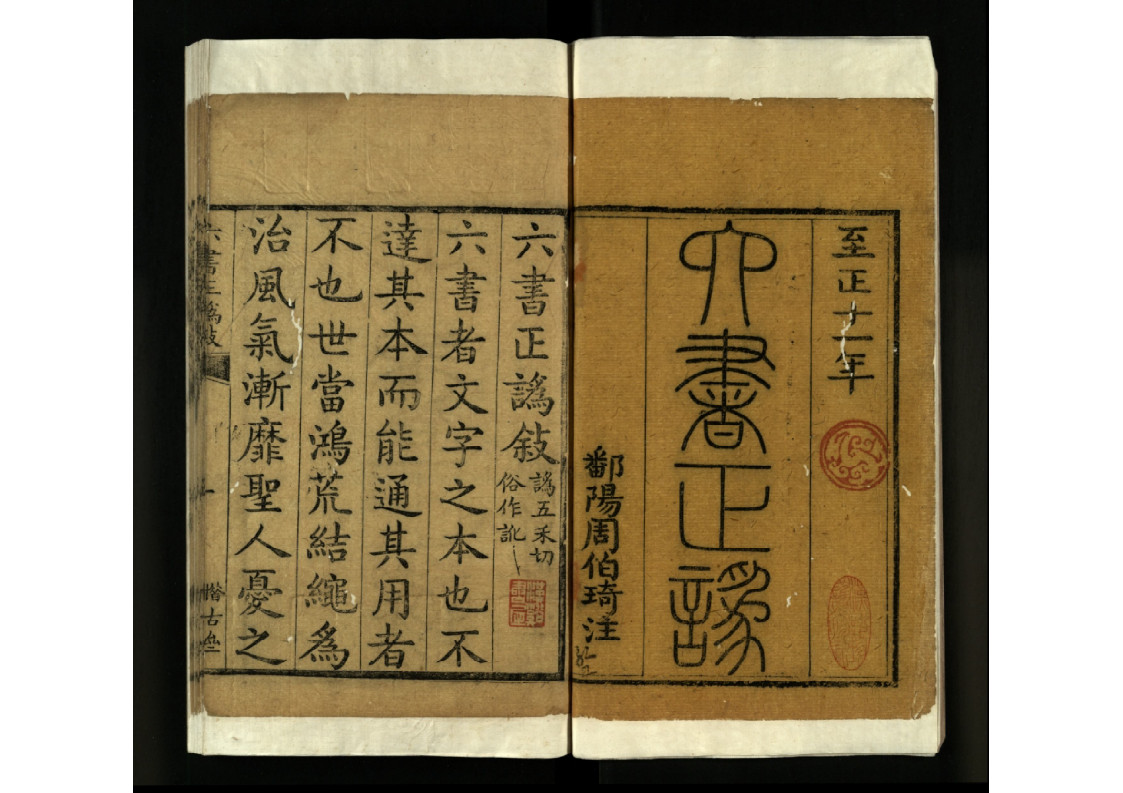 至正十一年
六書正譌
鄱陽周伯琦注
六書正譌敍
譌五禾切
俗作訛
六書者文字之本也不
達其本而能通其用者
不也世當鴻荒結繩爲
治風氣漸靡聖人憂之
六書正譌敍
古